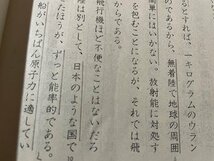 るとすれば、一キログラムのウラン
のであるから、無着陸で地球の周囲
単にはいかない。放射能に対処す
を包むことになるが、それでは飛
からである。
飛行機ほど不便なことはないだろ
陸は別として、日本のような国で
たほうが、ずっと能率的である。
船がいちばん原子力に適してい